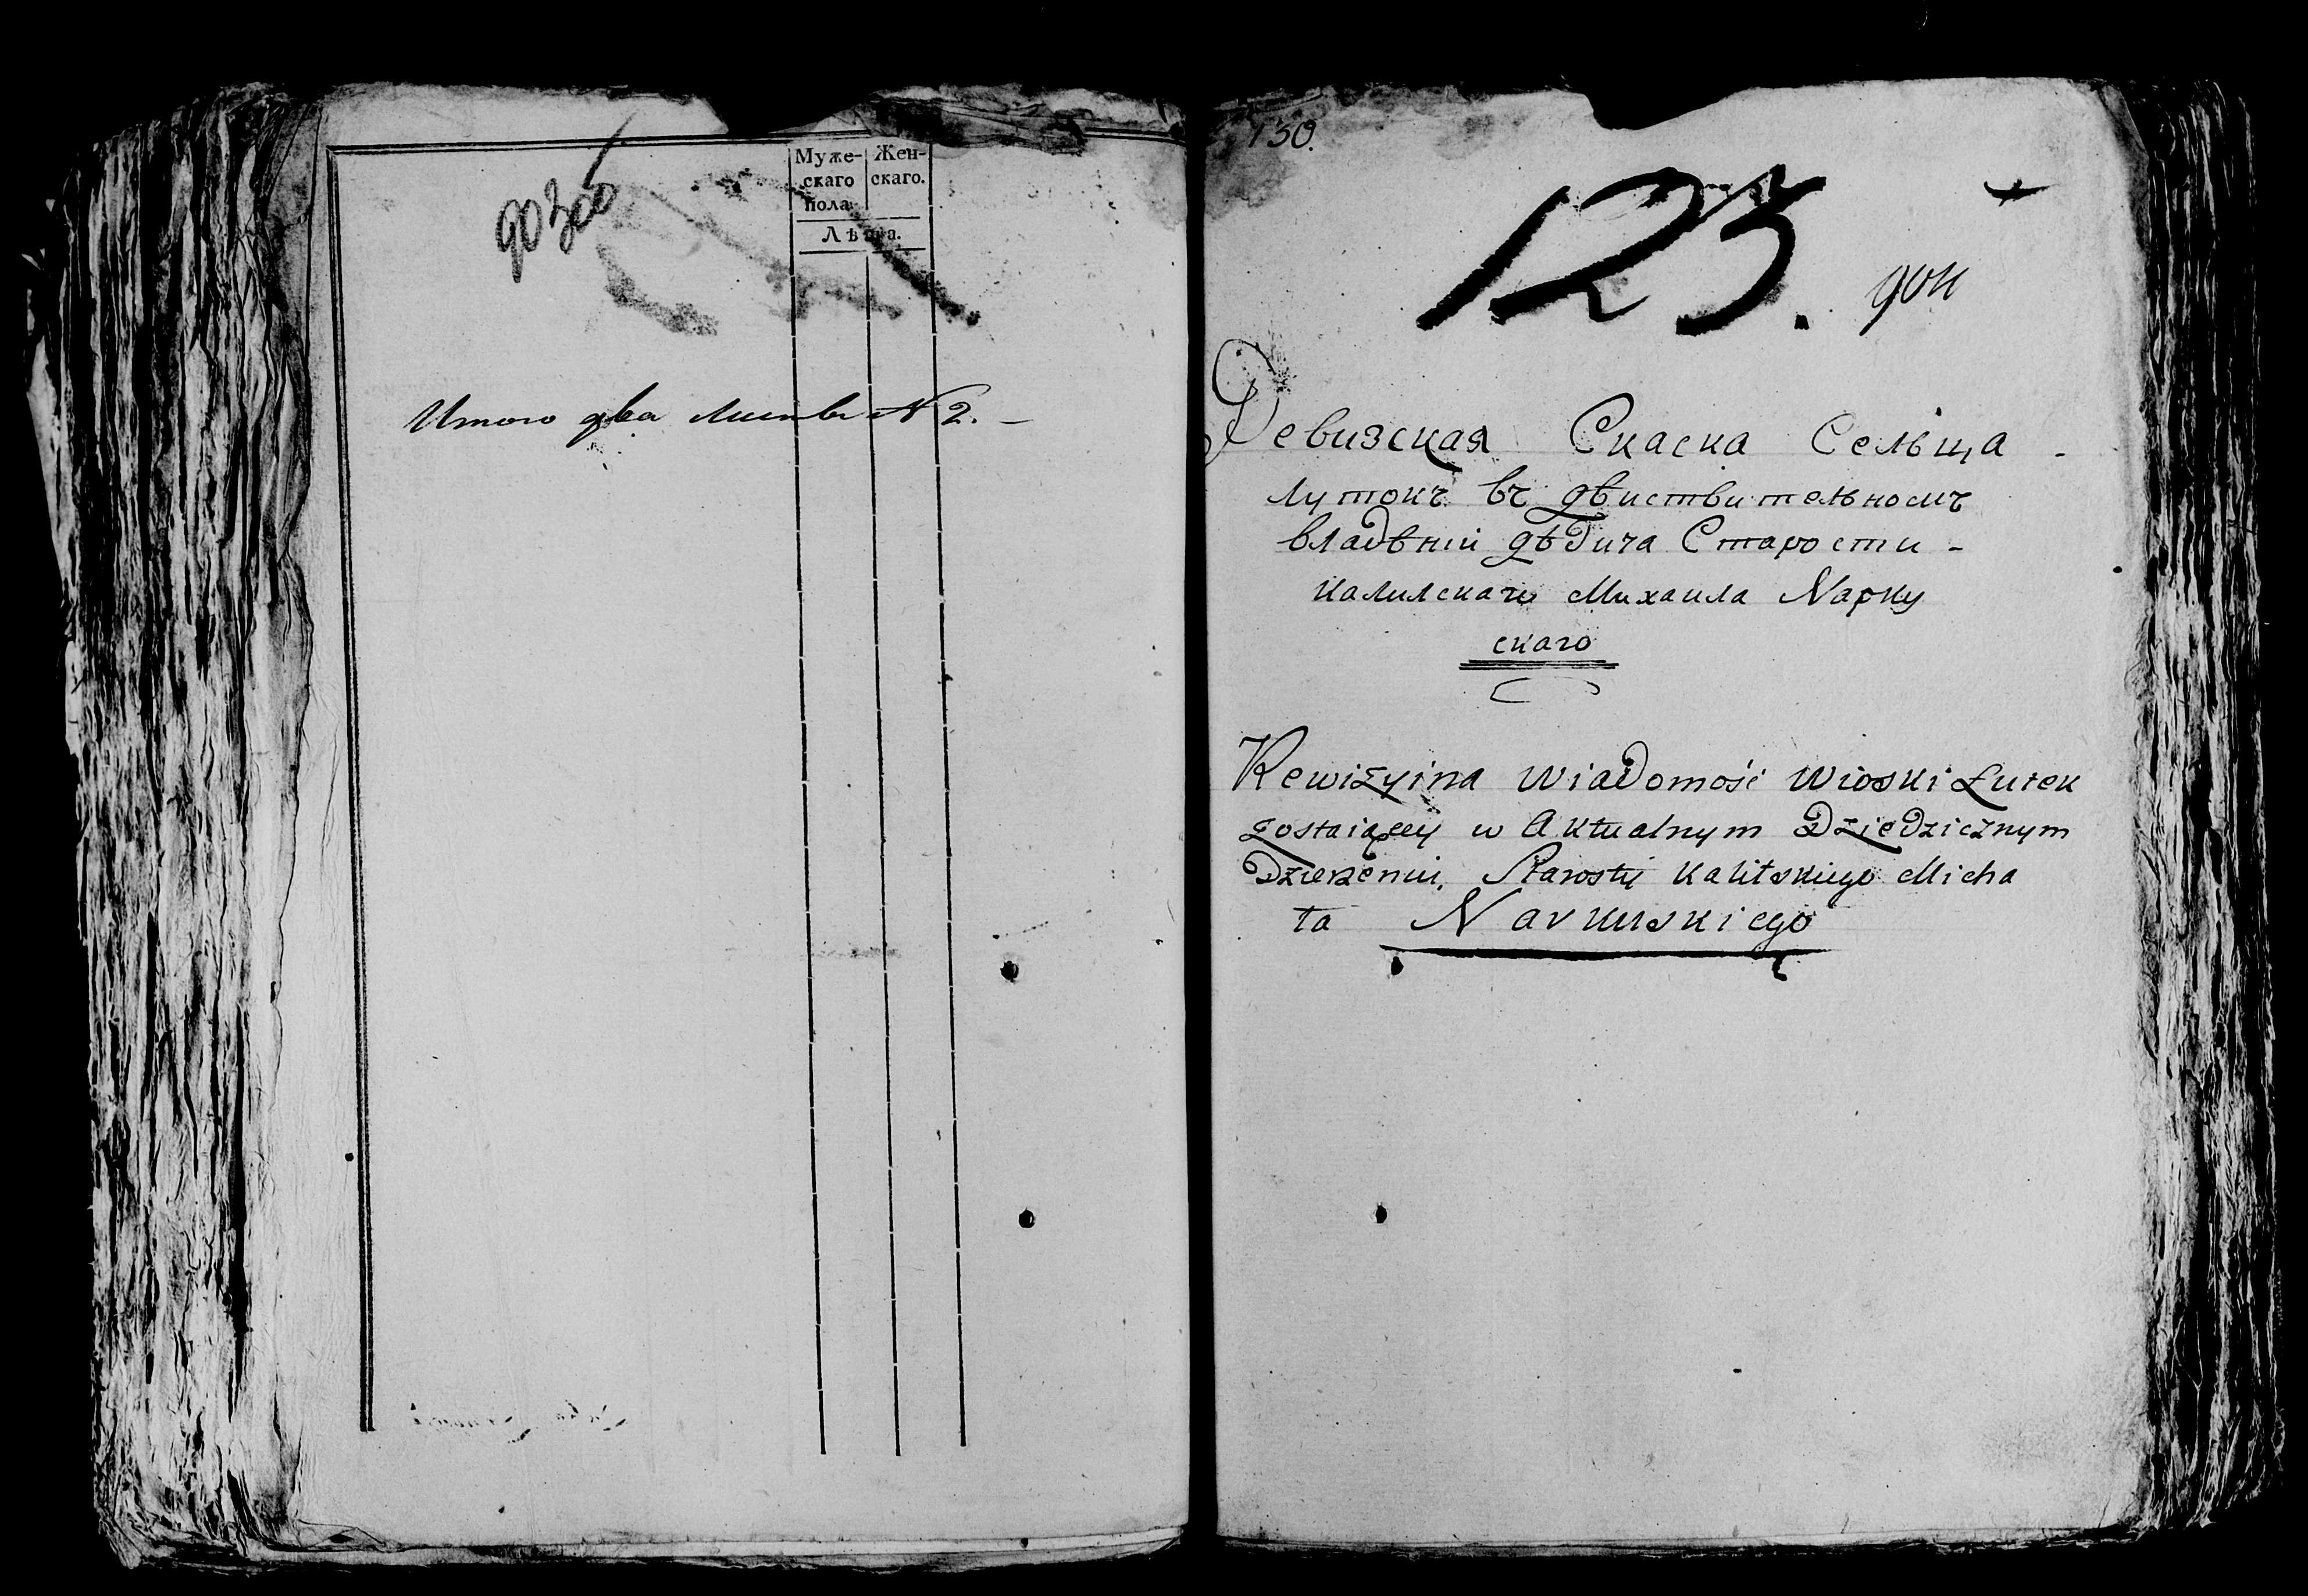 Муже-
скаго
пола.
Жен-
скаго.
Лѣта.
Итого два листа N 2. –
130.
123.
Ревизская Скаска Сельца -
Лутокъ въ дѣиствительномъ
владѣніи дѣдича Старости -
Калилскаго Михаила Nарку
скаго
Rewizyina Wiadomość Wioski Łutek
zostaiącey w Aktualnym Dziedzicznym
Dzierzeniu, Starosty Kalilskiego Micha
ła Narkuskiego